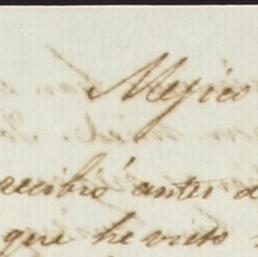 Mejico
recibió antes d
que he visto